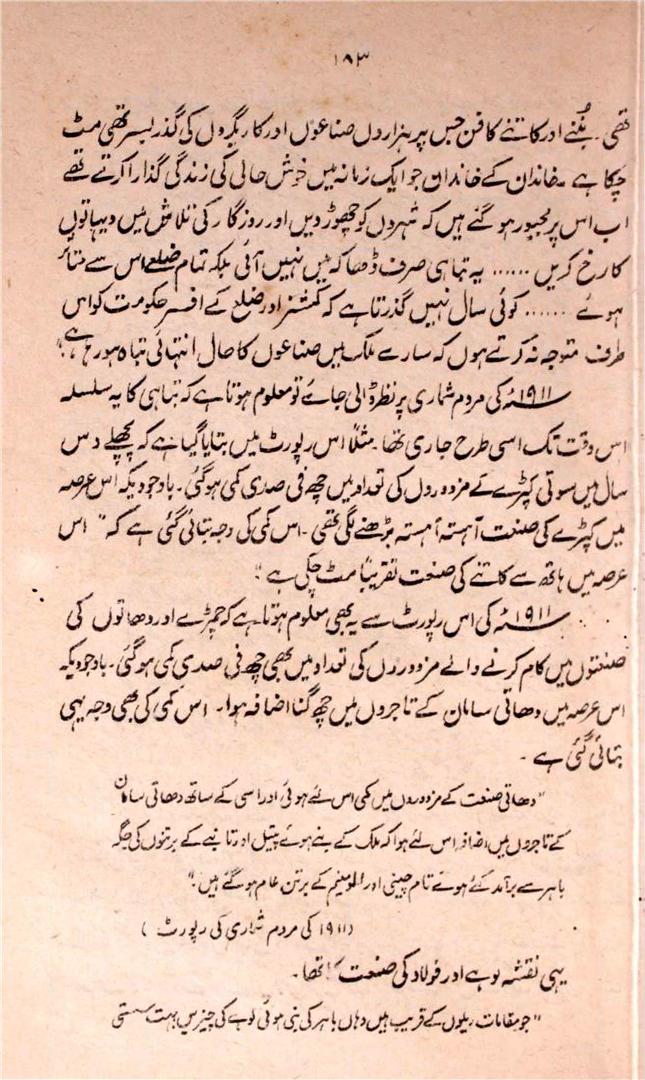 ۱۸۳
تھی۔ بُننے اور کاتنے کا فن جس پر ہزاروں صناعوں اور کاریگروں کی گذر بسر تھی مٹ
چکا ہے۔ خاندان کے خاندان جو ایک زمانہ میں خوش حالی کی زندگی گذارا کرتے تھے
اب اس پر مجبور ہو گئے ہیں کہ شہروں کو چھوڑ دیں اور روزگار کی تلاش میں دیہاتوں
کا رخ کریں ...... یہ تباہی صرف ڈھاکہ میں نہیں آئی بلکہ تمام ضلعے اس سے متاثر
ہوئے ...... کوئی سال نہیں گذرتا ہے کہ کمشنر اور ضلع کے افسر حکومت کو اس
طرف متوجہ نہ کرتے ہوں کہ سارے ملک میں صناعوں کا حال انتہائی تباہ ہو رہا ہے۔"
۱۹۱۱ء کی مردم شماری پر نظر ڈالی جائے تو معلوم ہوتا ہے کہ تباہی کا یہ سلسلہ
اس وقت تک اسی طرح جاری تھا۔ مثلاً اس رپورٹ میں بتایا گیا ہے کہ پچھلے دس
سال میں سوتی کپڑے کے مزدوروں کی تعداد میں چھ فی صدی کمی ہو گئی۔ باوجودیکہ اس عرصہ
میں کپڑے کی صنعت آہستہ آہستہ بڑھنے لگی تھی۔ اس کمی کی وجہ بتائی گئی ہے کہ "اس
عرصہ میں ہاتھ سے کاتنے کی صنعت تقریباً مٹ چکی ہے"۔
۱۹۱۱ء کی اس رپورٹ سے یہ بھی معلوم ہوتا ہے کہ چمڑے اور دھاتوں کی
صنعتوں میں کام کرنے والے مزدوروں کی تعداد میں بھی چھ فی صدی کمی ہو گئی۔ باوجودیکہ
اس عرصہ میں دھاتی سامان کے تاجروں میں چھ گنا اضافہ ہوا۔ اس کمی کی بھی وجہ یہی
بتائی گئی ہے۔
"دھاتی صنعت کے مزدوروں میں کمی اس لئے ہوئی اور اسی کے ساتھ دھاتی سامان
کے تاجروں میں اضافہ اس لئے ہوا کہ ملک کے بنے ہوئے پیتل اور تانبے کے برتنوں کی جگہ
باہر سے برآمد کئے ہوئے تام چینی اور الومینیم کے برتن عام ہو گئے ہیں۔"
(۱۹۱۱ کی مردم شماری کی رپورٹ)
یہی نقشہ لوہے اور فولاد کی صنعت کا تھا۔
"جو مقامات ریلوں کے قریب ہیں وہاں باہر کی بنی ہوئی لوہے کی چیزیں بہت سستی